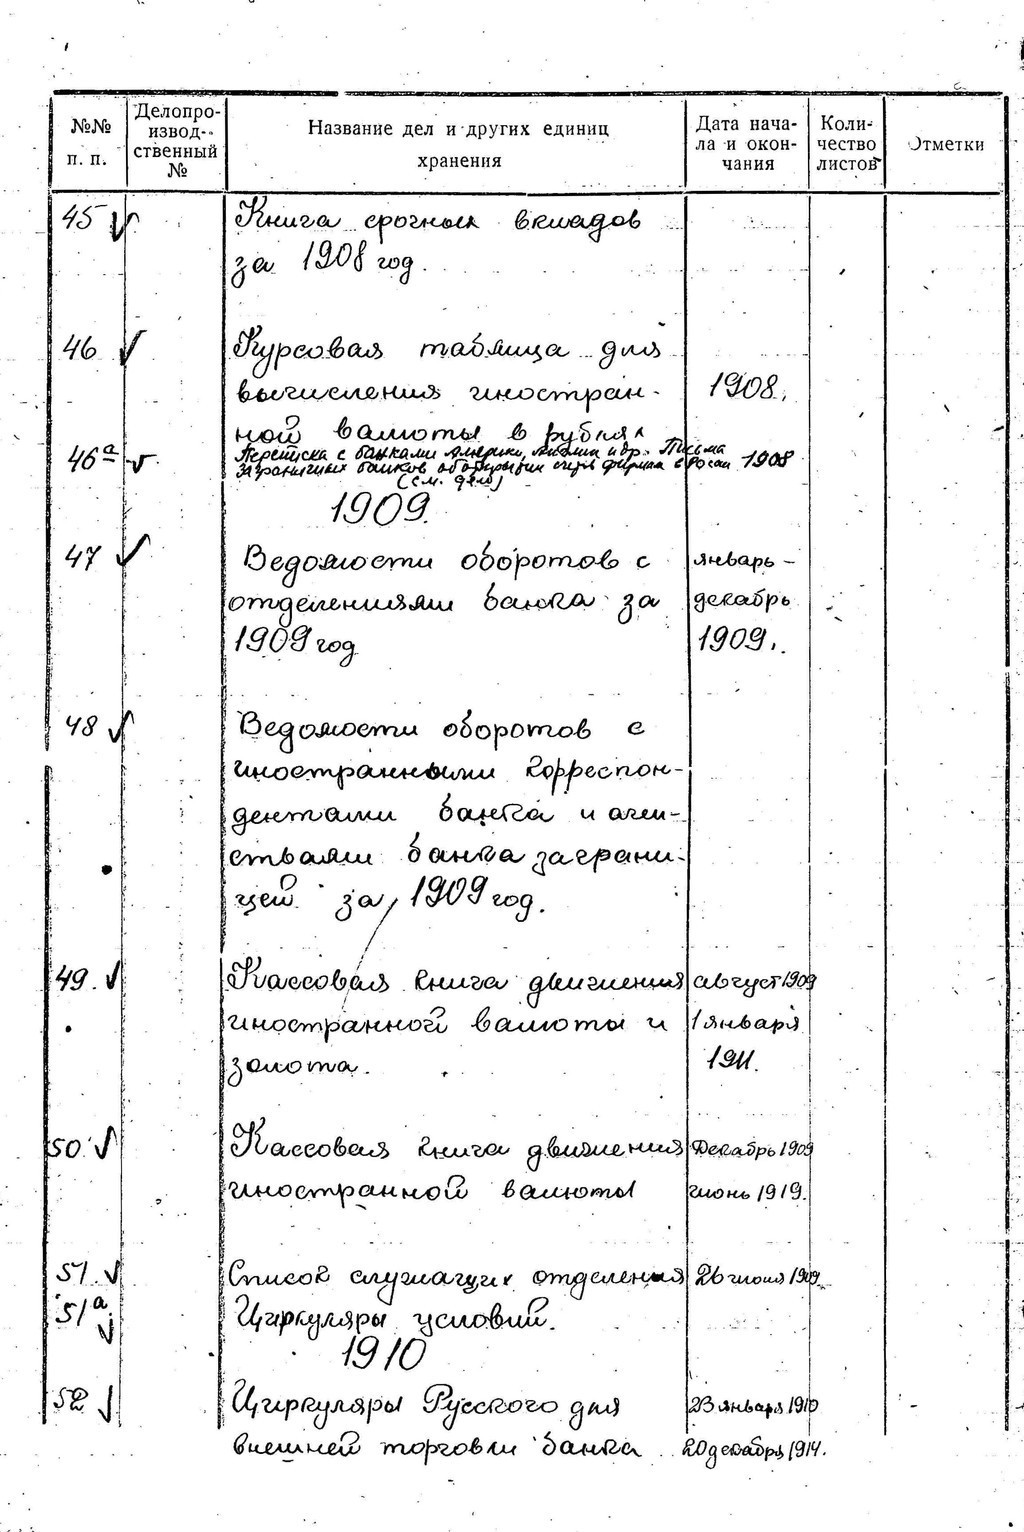 №№ п. п.
Делопро-
извод-
ственный
№
Название дел и других единиц
хранения
Дата нача-
ла и окон-
чания
Коли-
чество
листов
Отметки
45
Книга срочных вкладов
за 1908 год.
46
Курсовая таблица для
вычисления иностран-
1908.
ной валюты в рублях
46а
Переписка с банками Америки, Англии и др. Письма
заграничных банков об открытии счетов фирмам в России
1908
(см. дело)
1909.
47
Ведомости оборотов с
январь -
отделениями банка за
декабрь
1909 год
1909.
48
Ведомости оборотов с
иностранными корреспон-
дентами банка и аген-
ствами банка заграни-
цей за 1909 год.
49.
Кассовая книга движения
август 1909
иностранной валюты и
1 января
золота.
1911.
50
Кассовая книга движения
Декабрь 1909
иностранной валюты
июнь 1919.
51.
Список служащих отделения
26 июля 1909
51а.
Циркуляры условий.
1910
52
Циркуляры Русского для
23 января 1910
внешней торговли банка
20 декабря 1914.